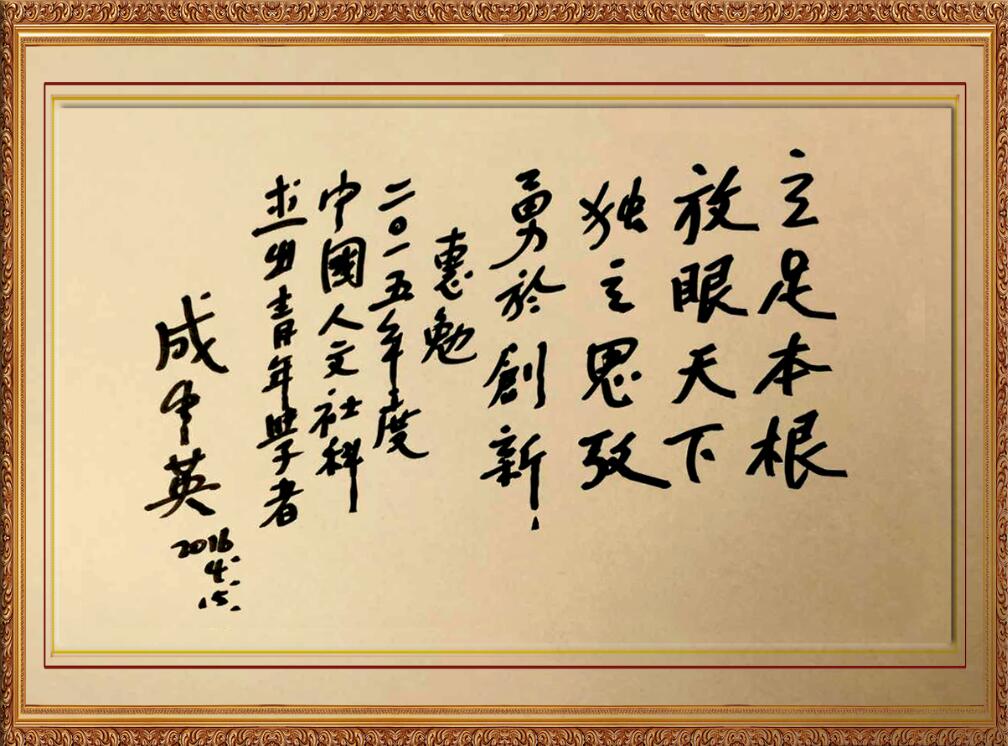 立足本根
放眼天下
独立思攷
勇於創新！
惠勉
二〇一五年度
中國人文社科
杰出青年學者
成中英
2016.
4.
15.